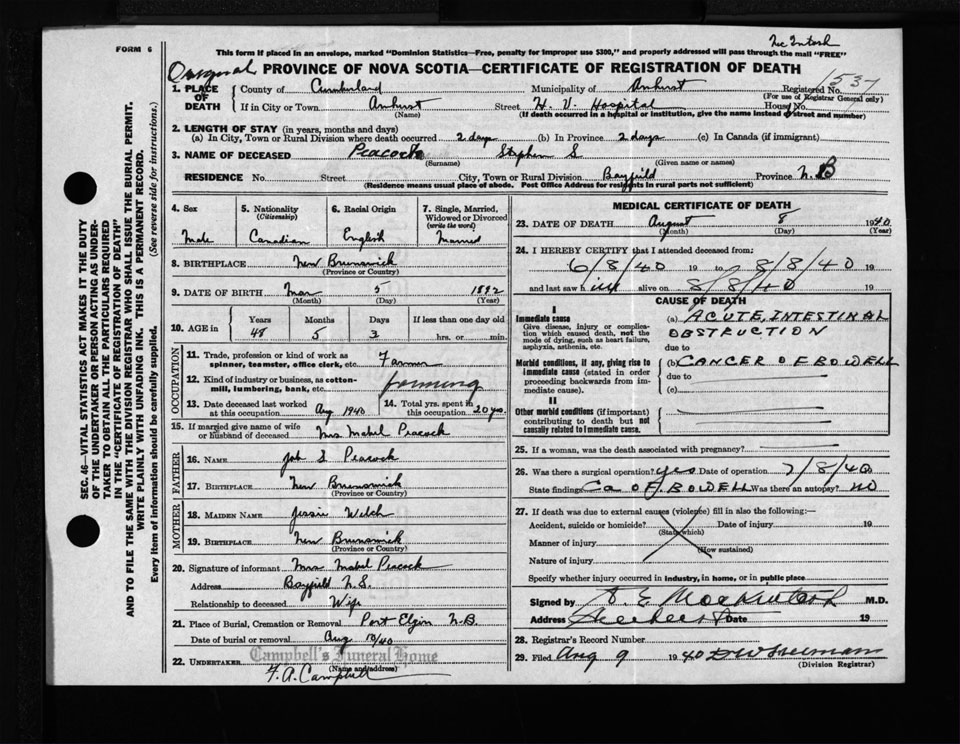 FORM 6
This form if placed in an envelope, marked "Dominion Statistics—Free, penalty for improper use $300," and properly addressed will pass through the mail "FREE"
Original PROVINCE OF NOVA SCOTIA—CERTIFICATE OF REGISTRATION OF DEATH
1. PLACE OF DEATH County of Cumberland Municipality of Amherst Registered No. 1537
(For use of Registrar General only)
If in City or Town Amherst Street H. V. Hospital House No.
(Name) (If death occurred in a hospital or institution, give the name instead of street and number)
2. LENGTH OF STAY (in years, months and days)
(a) In City, Town or Rural Division where death occurred 2 days (b) In Province 2 days (c) In Canada (if immigrant)
3. NAME OF DECEASED Peacock Stephen S
(Surname) (Given name or names)
RESIDENCE No. Street City, Town or Rural Division Bayfield Province N.B
(Residence means usual place of abode. Post Office Address for residents in rural parts not sufficient)
SEC. 46—VITAL STATISTICS ACT MAKES IT THE DUTY
OF THE UNDERTAKER OR PERSON ACTING AS UNDER-
TAKER TO OBTAIN ALL THE PARTICULARS REQUIRED
IN THE "CERTIFICATE OF REGISTRATION OF DEATH"
AND TO FILE THE SAME WITH THE DIVISION REGISTRAR WHO SHALL ISSUE THE BURIAL PERMIT.
WRITE PLAINLY WITH UNFADING INK. THIS IS A PERMANENT RECORD.
Every item of information should be carefully supplied. (See reverse side for instructions.)
4. Sex 5. Nationality (Citizenship) 6. Racial Origin 7. Single, Married, Widowed or Divorced (write the word)
Male Canadian English Married
8. BIRTHPLACE New Brunswick
(Province or Country)
9. DATE OF BIRTH Mar 5 1892
(Month) (Day) (Year)
10. AGE in Years Months Days If less than one day old
48 5 3 hrs. or min.
OCCUPATION
11. Trade, profession or kind of work as spinner, teamster, office clerk, etc. Farmer
12. Kind of industry or business, as cotton-mill, lumbering, bank, etc. farming
13. Date deceased last worked at this occupation Aug 1940 14. Total yrs. spent in this occupation 20 yrs.
15. If married give name of wife or husband of deceased Mrs Mabel Peacock
FATHER
16. NAME Peacock
17. BIRTHPLACE New Brunswick
(Province or Country)
MOTHER
18. MAIDEN NAME Jessie Welch
19. BIRTHPLACE New Brunswick
(Province or Country)
20. Signature of informant Mrs Mabel Peacock
Address Bayfield N.S.
Relationship to deceased Wife
21. Place of Burial, Cremation or Removal Port Elgin N.B.
Date of burial or removal Aug 10/40
Campbell's Funeral Home
22. UNDERTAKER F. A. Campbell
(Name and address)
MEDICAL CERTIFICATE OF DEATH
23. DATE OF DEATH August 8 1940
(Month) (Day) (Year)
24. I HEREBY CERTIFY that I attended deceased from:
6/8/40 19 to 8/8/40 19
and last saw him alive on 8/8/40 19
CAUSE OF DEATH
I
Immediate cause (a) ACUTE INTESTINAL
Give disease, injury or complication which caused death, not the mode of dying, such as heart failure, asphyxia, asthenia, etc. OBSTRUCTION
due to
Morbid conditions, if any, giving rise to immediate cause (stated in order proceeding backwards from immediate cause). (b) CANCER OF BOWELL
due to
(c)
II
Other morbid conditions (if important) contributing to death but not causally related to immediate cause.
25. If a woman, was the death associated with pregnancy?
26. Was there a surgical operation? yes Date of operation 7/8/40
State findings Ca OF BOWELL Was there an autopsy? NO
27. If death was due to external causes (violence) fill in also the following:—
Accident, suicide or homicide? Date of injury 19
(State which)
Manner of injury
(How sustained)
Nature of injury
Specify whether injury occurred in industry, in home, or in public place
Signed by E MacKintosh M.D.
Address Date 19
28. Registrar's Record Number
29. Filed Aug 9 1940 D W Freeman
(Division Registrar)